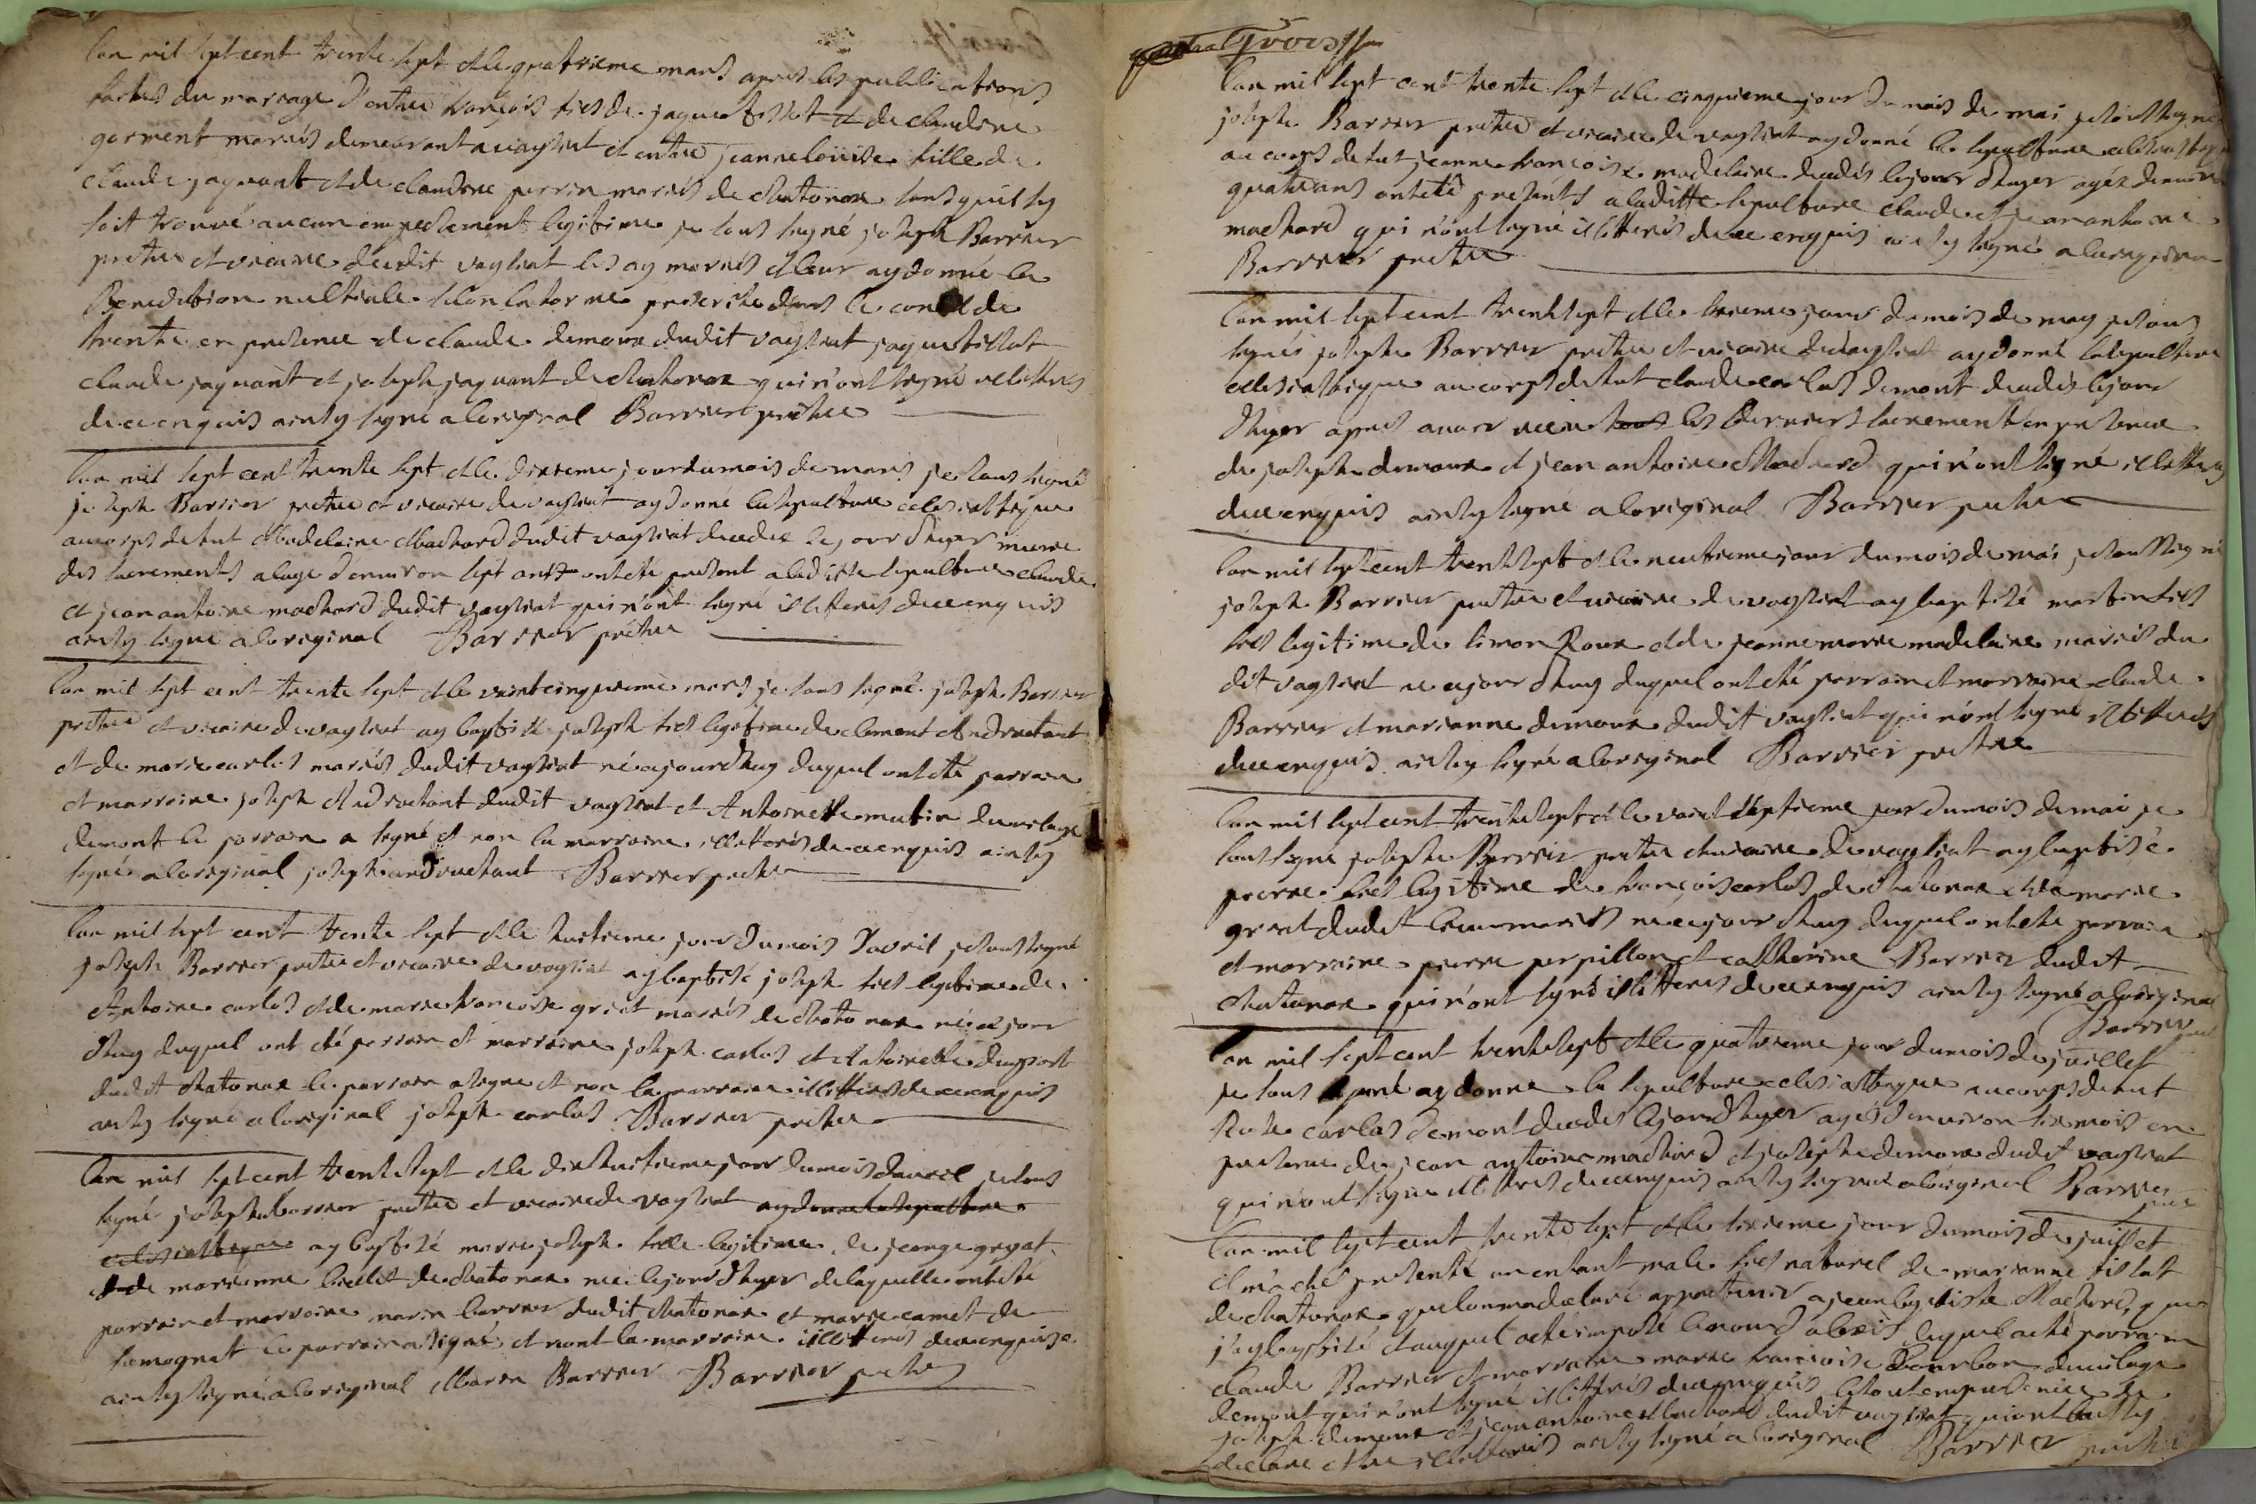 Lan mil sept cent trente sept et le quatrieme mars apres les publications
faites du mariage d'entre francois fils de jaque fillot et de claudine
gorment mariés demeurant a vaysiat et entre jeanne louise fille de
claude jaquant et de claudine perrin mariés de chatonax sans quil sy
soit trouvé aucun empechement legitime je sous signé joseph Barrier
pretre et vicaire dudit vaysiat les ay mariés et leur ay donné la
Benediction nubtiale selon la forme prescrite dans le concil de
trente en presence de claude demoux dudit vaysiat jaque fillot
claude jaquant et joseph jaquant de chatonax qui n'ont signé illettres
de ce enquis ainsy signé a loriginal Barrier pretre
Lan mil sept cent trente sept et le dixieme jour du mois de mars je sous signé
joseph Barrier pretre et vicaire de vaysiat ay donné la sepulture eclesiastique
au corps de fut Madelaine Machard dudit vaysiat decedee le jour d'hyer munie
des sacrements a lage d'environ sept ans ont eté present a laditte sepulture claude
et jean antoine machard dudit vaysiat qui n'ont signé illiteres de ce enquis
ainsy signé a loriginal Barrier prétre
Lan mil sept cent trente sept et le vaint cinquieme mars je sous signé joseph Barrier
pretre et vicaire de vaysiat ay baptisé joseph fils legitime de clement Andruetant
et de marie carlos mariés dudit vaysiat né ajourdhuy duquel ont eté parrain
et marraine joseph Andruetant dudit vaysiat et Antoinette mutin du vilage
demont le parrain a signé et non la marraine illiteres de ce enquis ainsy
signé a loriginal joseph andruetant Barrier pretre
Lan mil sept cent trente sept et le huitieme jour du mois d'avril je sous signé
joseph Barrier pretre et vicaire de vaysiat ay baptisé joseph fils legitime de
Antoine carlos et de marie francoise griot mariés de chatonax né ce jour
dhuy duquel ont eté parrain et marraine joseph carlos et Antoinette dupont
dudit chatonax le parrain a signe et non la marraine illitteres de ce enquis
ainsy signé a loriginal joseph carlos Barrier pretre
Lan mil sept cent trente sept et le dix huitieme jour du mois davril je sous
signé joseph barrier pretre et vicaire de vaysiat ay donné la sepulture
eclesiastique ay baptisé marie joseph fille legitime de jeange
et de marianne de chatonax née le jour dhyer de laquelle ont eté
parrain et marraine marin barrier dudit chatonax et marie camet de
samognat le parrain a signé et nont la marraine illitteres de ce enquise
ainsy signé a loriginal Marin Barrier Barrier pretre
Trois
Lan mil sept cent trente sept et le cinquieme jour du mois de mai je sous signe
joseph Barrier pretre et vicaire de vaysiat ay donné la sepulture eclesiastique
au corps de fut jeanne francoise madelaine decedés le jour dhyer ages denviron
quatre ans ont eté presents a laditte sepulture claude et jean antoine
machard qui n'ont signé illitterés de ce enquis ainsy signé a loriginal
Barrier pretre
Lan mil sept cent trente sept et le treieme jour du mois de may je sous
signés joseph Barrier pretre et vicaire de vaysiat ay donné la sepulture
eclesiastique au corps de fut claude carlos demont decedés le jour
dhyer apres avoir recu tous les derniers sacrement en presence
de joseph demoux et jean antoine Machard qui n'ont signé illettres
de ce enquis ainsy signé a loriginal Barrier pretre
Lan mil sept cent trente sept et le neufvieme jour du mois de mai je sous signé
joseph Barrier pretre et vicaire de vaysiat ay baptisé martin fils
fils legitime de simon Roux et de jeanne marie madelaine mariés du
dit vaysiat né ce jour dhuy duquel ont eté parrain et marraine claude
Barrier et marianne demoux dudit vaysiat qui n'ont signé illitterés
de ce enquis ainsy signé a loriginal Barrier pretre
Lan mil sept cent trente sept et le vaint septieme jour du mois de mai je
sous signé joseph Barrier pretre et vicaire de vaysiat ay baptisé
pierre fils legitime de françois carlos de chatonax et de marie
griot dudit lieu mariés né ce jour dhuy duquel ont eté parrain
et marraine pierre perpillon et catherine Barrier dudit
chatonax qui n'ont signé illitteres de ce enquis ainsy signé a loriginal
Barrier
Lan mil sept cent trente sept et le quatrieme jour du mois de juillet
je sous signé ay donné la sepulture eclesiastique au corps de fut
Rose carlos demont decedes le jour dhyer agés denviron six mois en
presence de jean antoine machard et joseph demoux dudit vaysiat
qui n'ont signé illitres de ce enquis ainsy signé a loriginal Barrier
Lan mil sept cent trente sept et le sixieme jour du mois de juillet
il m'a eté presenté un enfant male fils naturel de marianne fillat
de chatonax quelon ma declaré appartenir a jean baptiste Machard, que
j'ay baptisé et auquel a eté imposé le nom d'alexis duquel a eté parrain
claude Barrier et marraine marie francoise Bourbon du vilage
demont qui n'ont signé illitterés de ce enquis le tout en presence de
joseph demoux et jean antoine Machard dudit vaysiat qui ont aussy
declaré etre illiterés ainsy signé a loriginal Barrier pretre